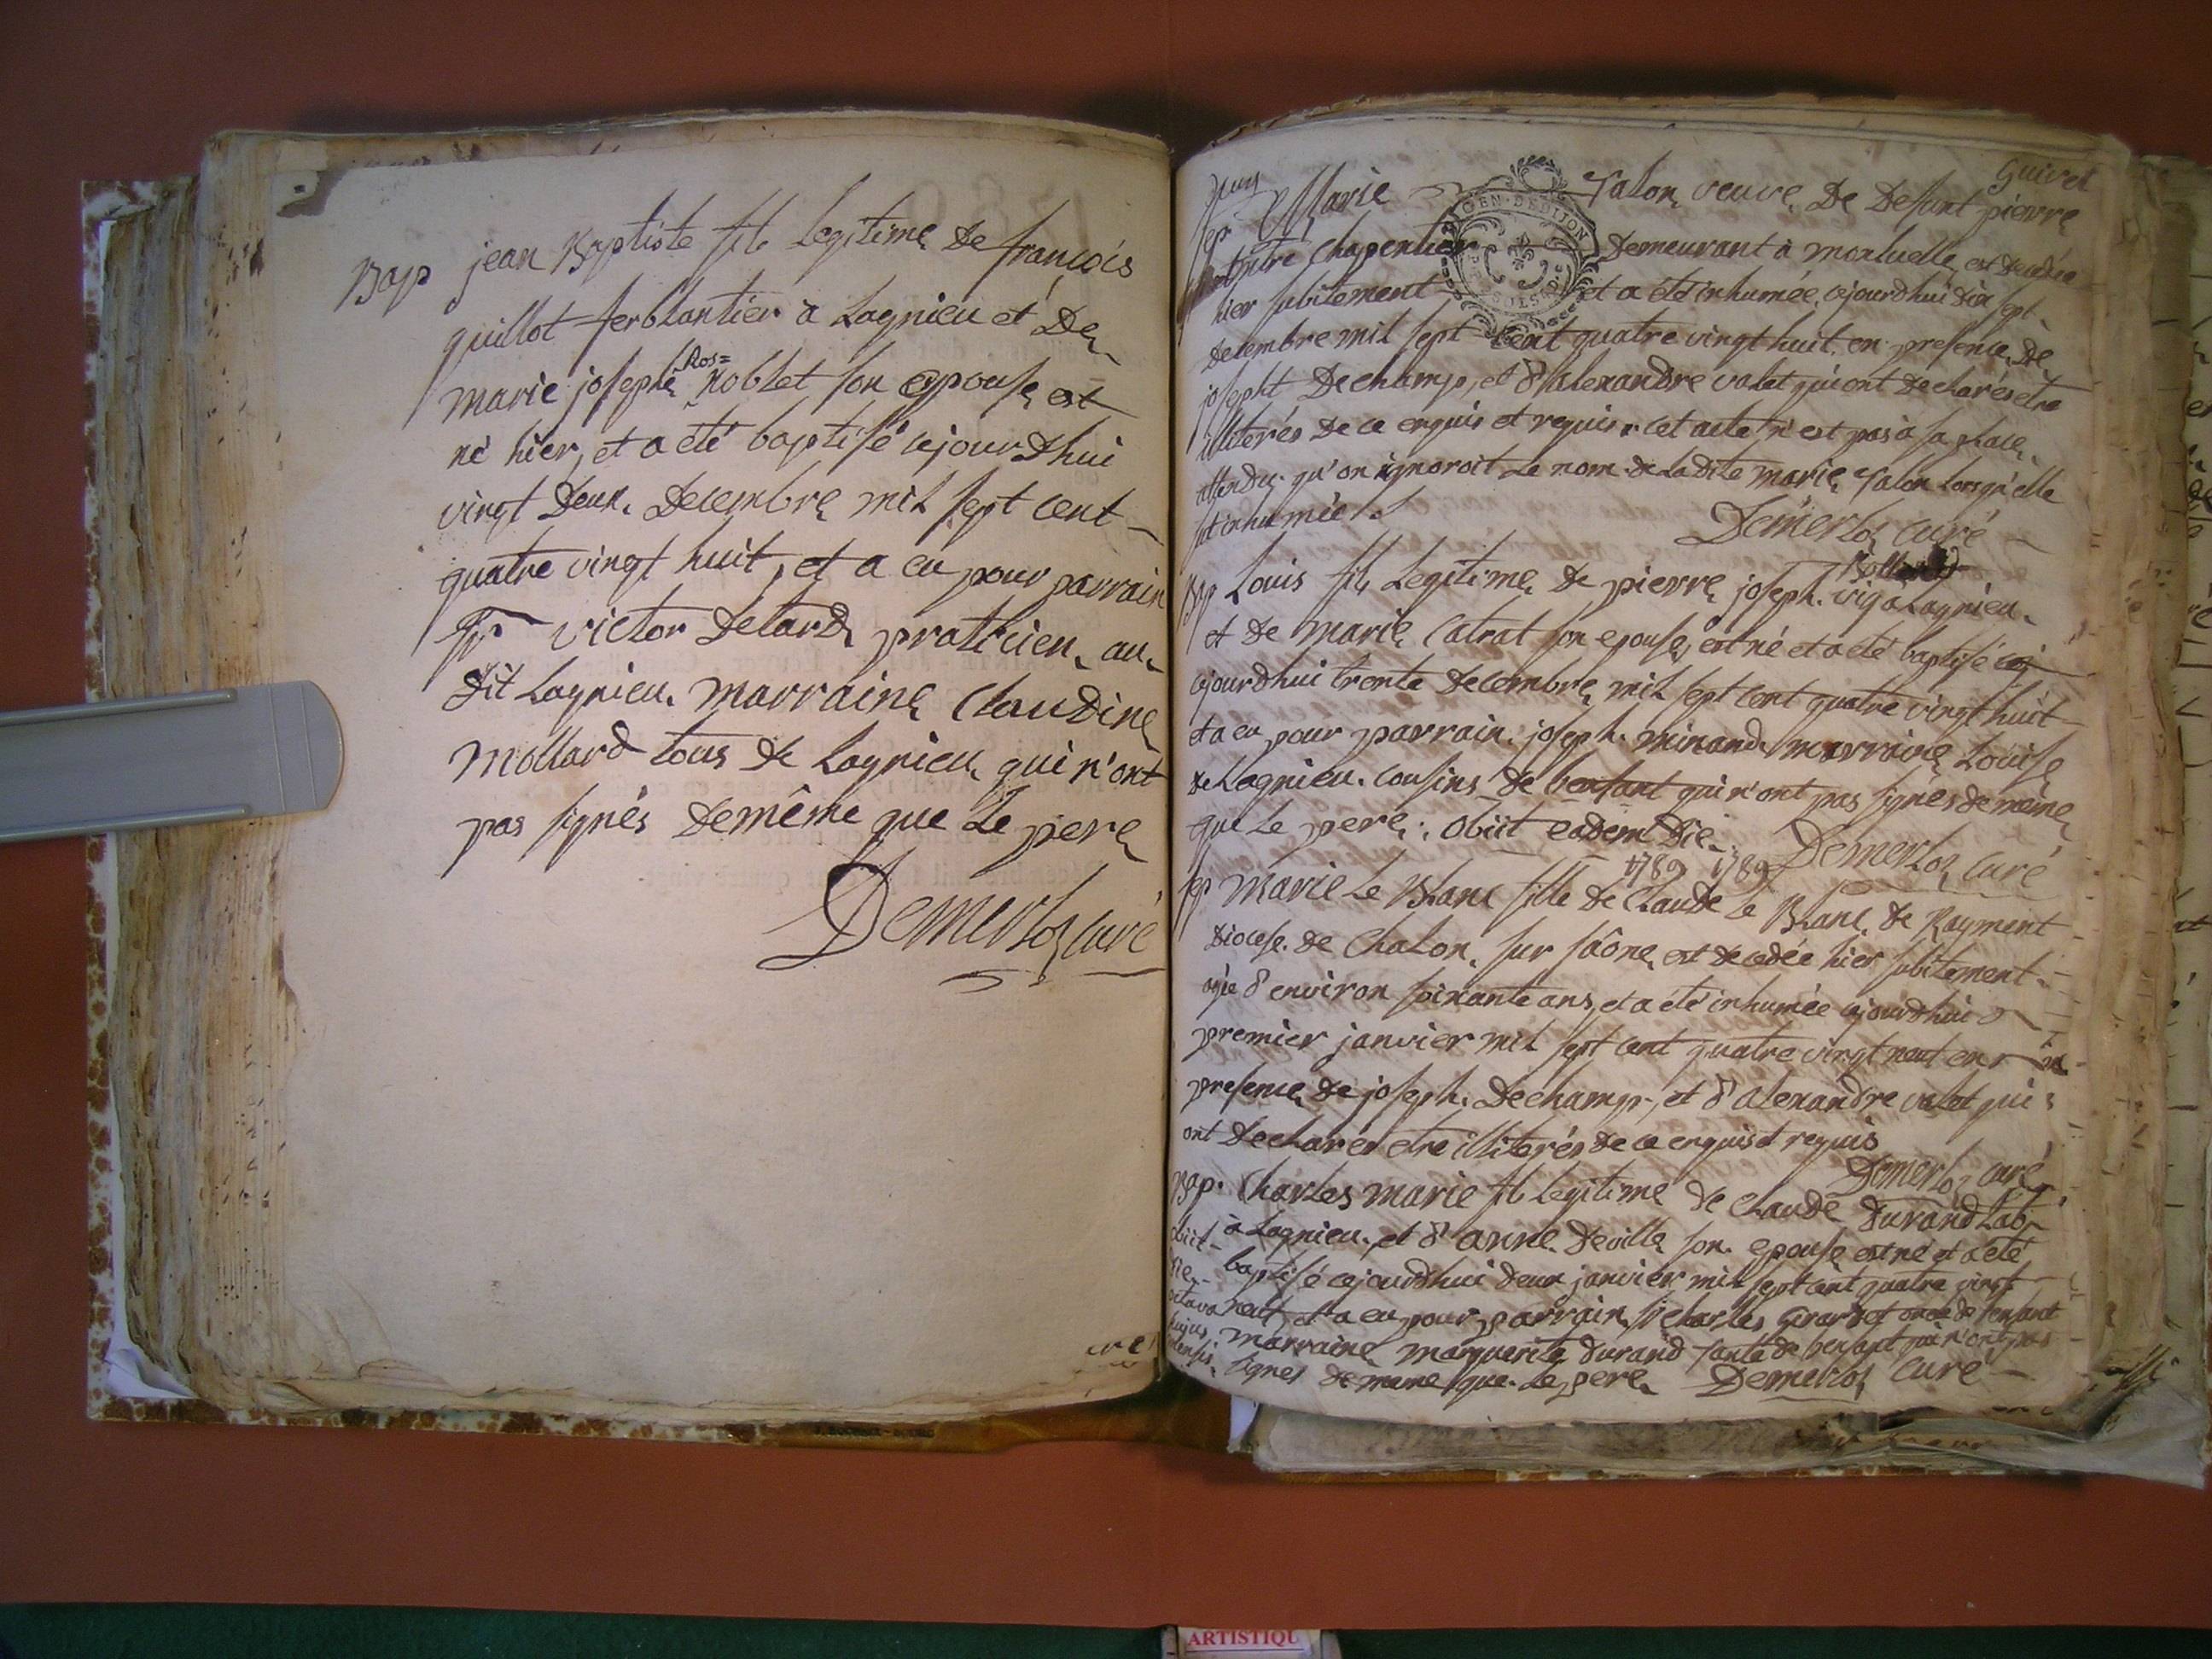 Bap jean Baptiste fils legitime de françois
guillot ferblantier a Lagnieu et De
Ros=
marie josephe noblet son epouse est
né hier, et a eté baptisé cejourdhui
vingt deux Decembre mil sept cent
quatre vingt huit, et a eu pour parrain
victor Detard praticien au
dit Lagnieu. marraine Claudine
mollard tous de Lagnieu qui n'ont
pas signés demême que le pere
Demerloz curé
Guivet
sep Marie Talon veuve De Defunt pierre
Chapentier Demeurant à montluelle est decedée
hier subitement et a été inhumée cejourdhui dix sept
decembre mil sept cent quatre vingt huit en presence De
josepht Dechamp, et d'alexandre valet qui ont declarés etre
illiterés de ce enquis et requis. cet acte n'est pas à sa place
attendu qu'on ignoroit le nom de Ladite marie Talon lorsqu'elle
fut inhumée
Demerloz curé
Bap Louis fils Legitime de pierre joseph vig a Lagnieu
et de marie Catrat son epouse, est né et a eté baptisé
cejourdhui trente decembre mil sept cent quatre vingt huit
et a eu pour parrain joseph minand marraine Louise
de Lagnieu. cousins de l'enfant qui n'ont pas signés de même
que le pere. obiit eadem die.
1789 1789 Demerloz curé
sep Marie Le Blanc fille de Claude Le Blanc de Rayment
Diocese de Chalon sur saône est decedée hier subitement
agée d'environ soixante ans, et a été inhumée cejourdhui
premier janvier mil sept cent quatre vingt neuf en
presence de joseph Dechamp, et d'alexandre valet qui
ont declarés etre illiterés de ce enquis et requis
Demerloz curé
Bap. Charles marie fils legitime de Claude Durand Lab
à Lagnieu et d'anne Deville son epouse est né et a eté
obiit
baptisé cejourdhui deux janvier mil sept cent quatre vingt
die
octava neuf et a eu pour parrain charles Girardot oncle de l'enfant
hujus marraine marguerite Durand tante de l'enfant qui n'ont pas
mensis signés de meme que le pere Demerloz curé
GEN. DE DIJON
ARTISTIQU